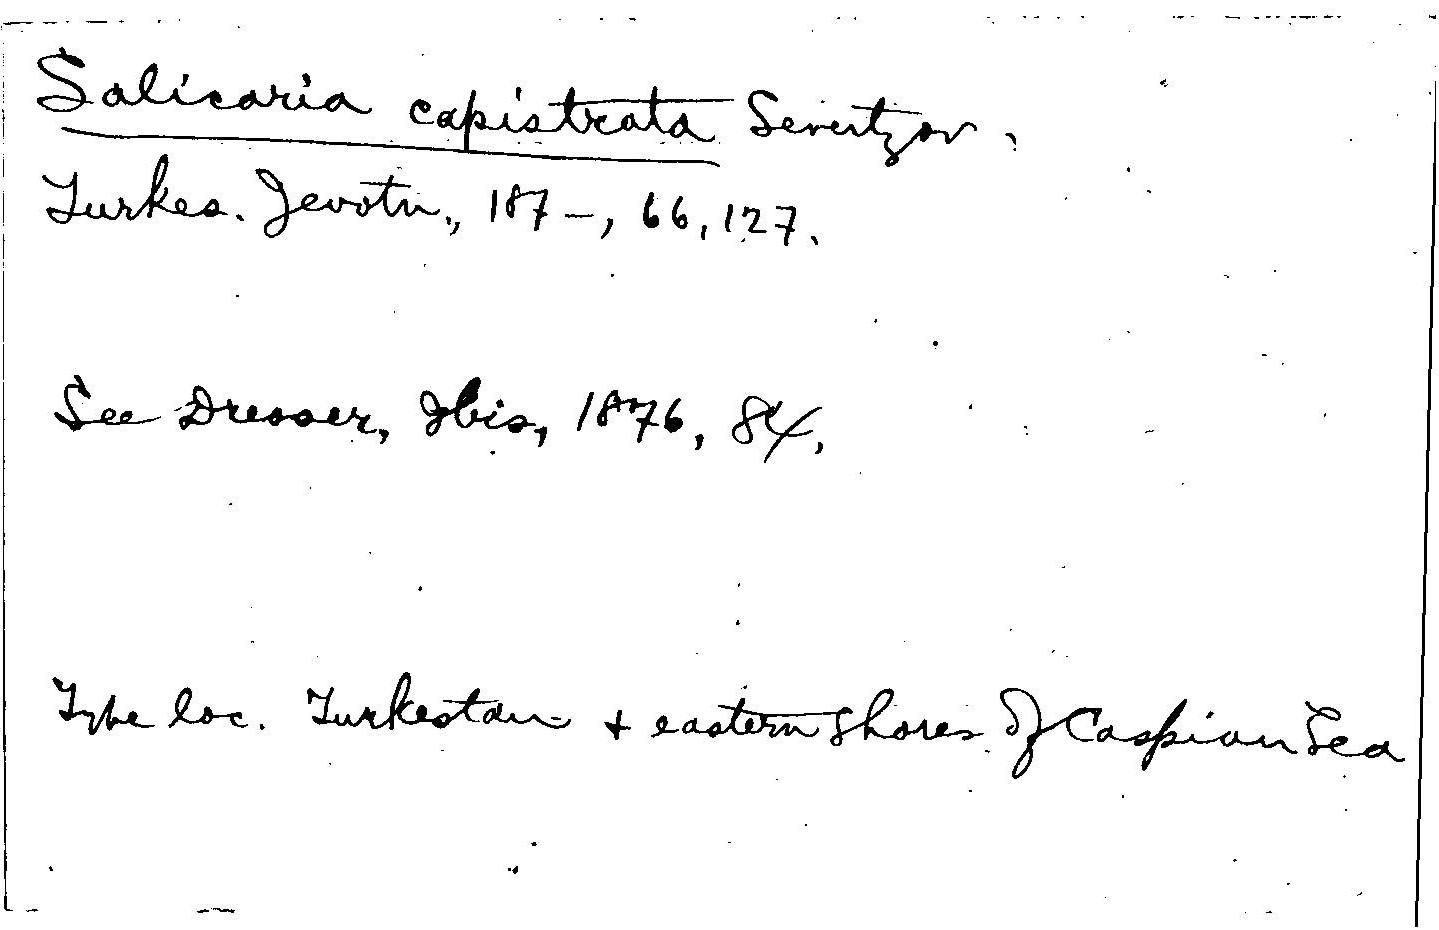 Salicaria capistrata Severtzov.
Turkes. Jevotn., 187-, 66, 127.
See Dresser, Ibis, 1876, 84.
Type loc. Turkestan + eastern shores of Caspian Sea